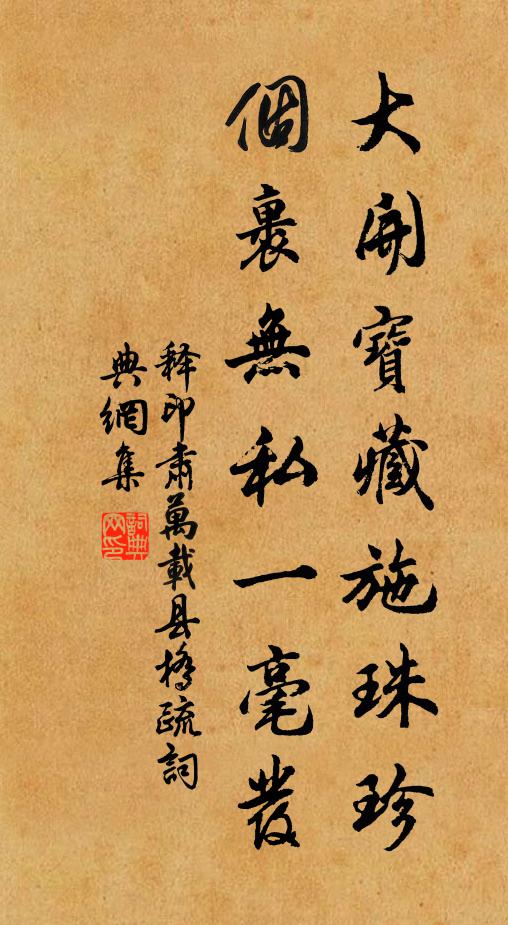 大開寶藏施珠珍
個裏無私一毫發
释印肅萬載县橋疏詞
典網集
詞典
网印